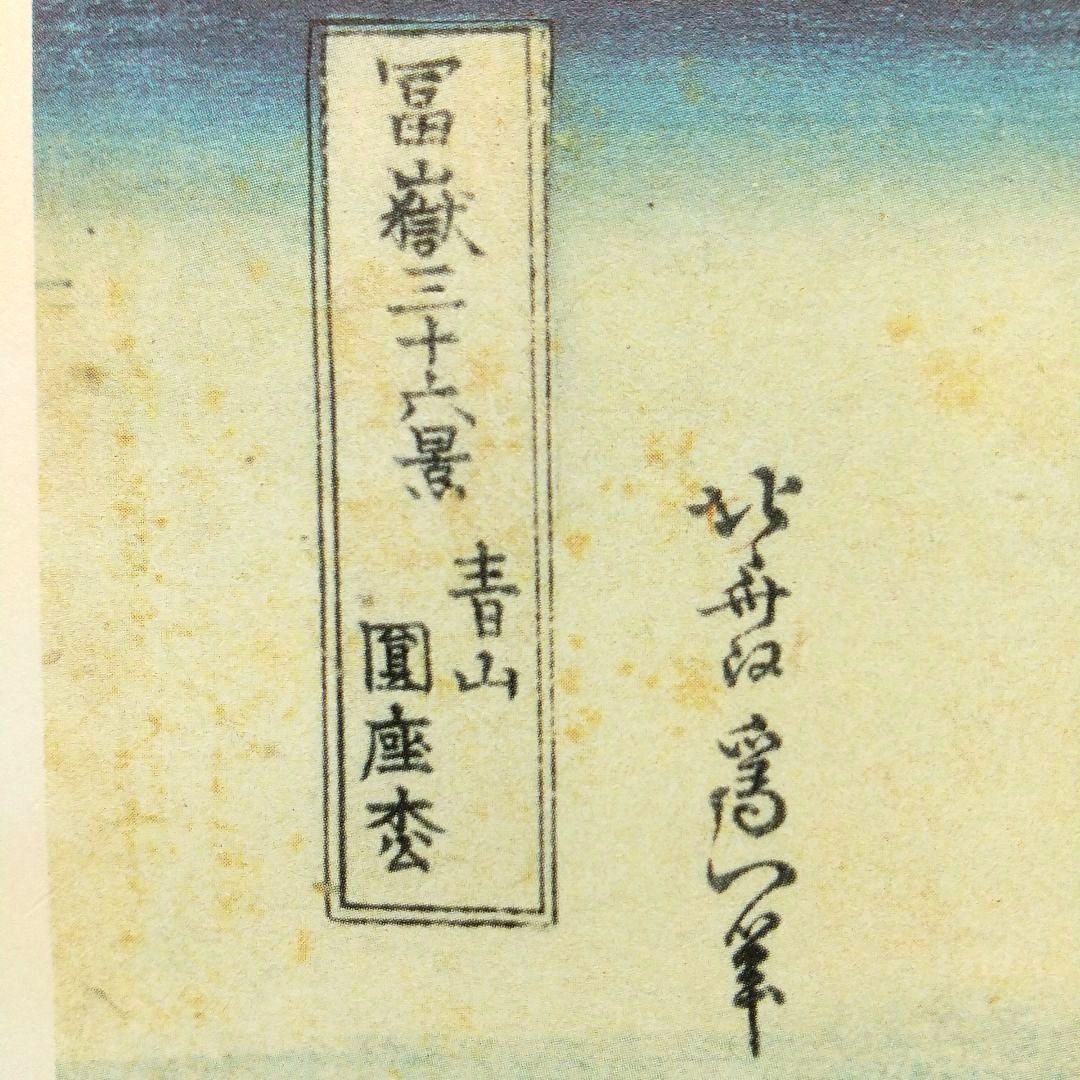 冨嶽三十六景
青山
圓座枩
北斎改爲一筆